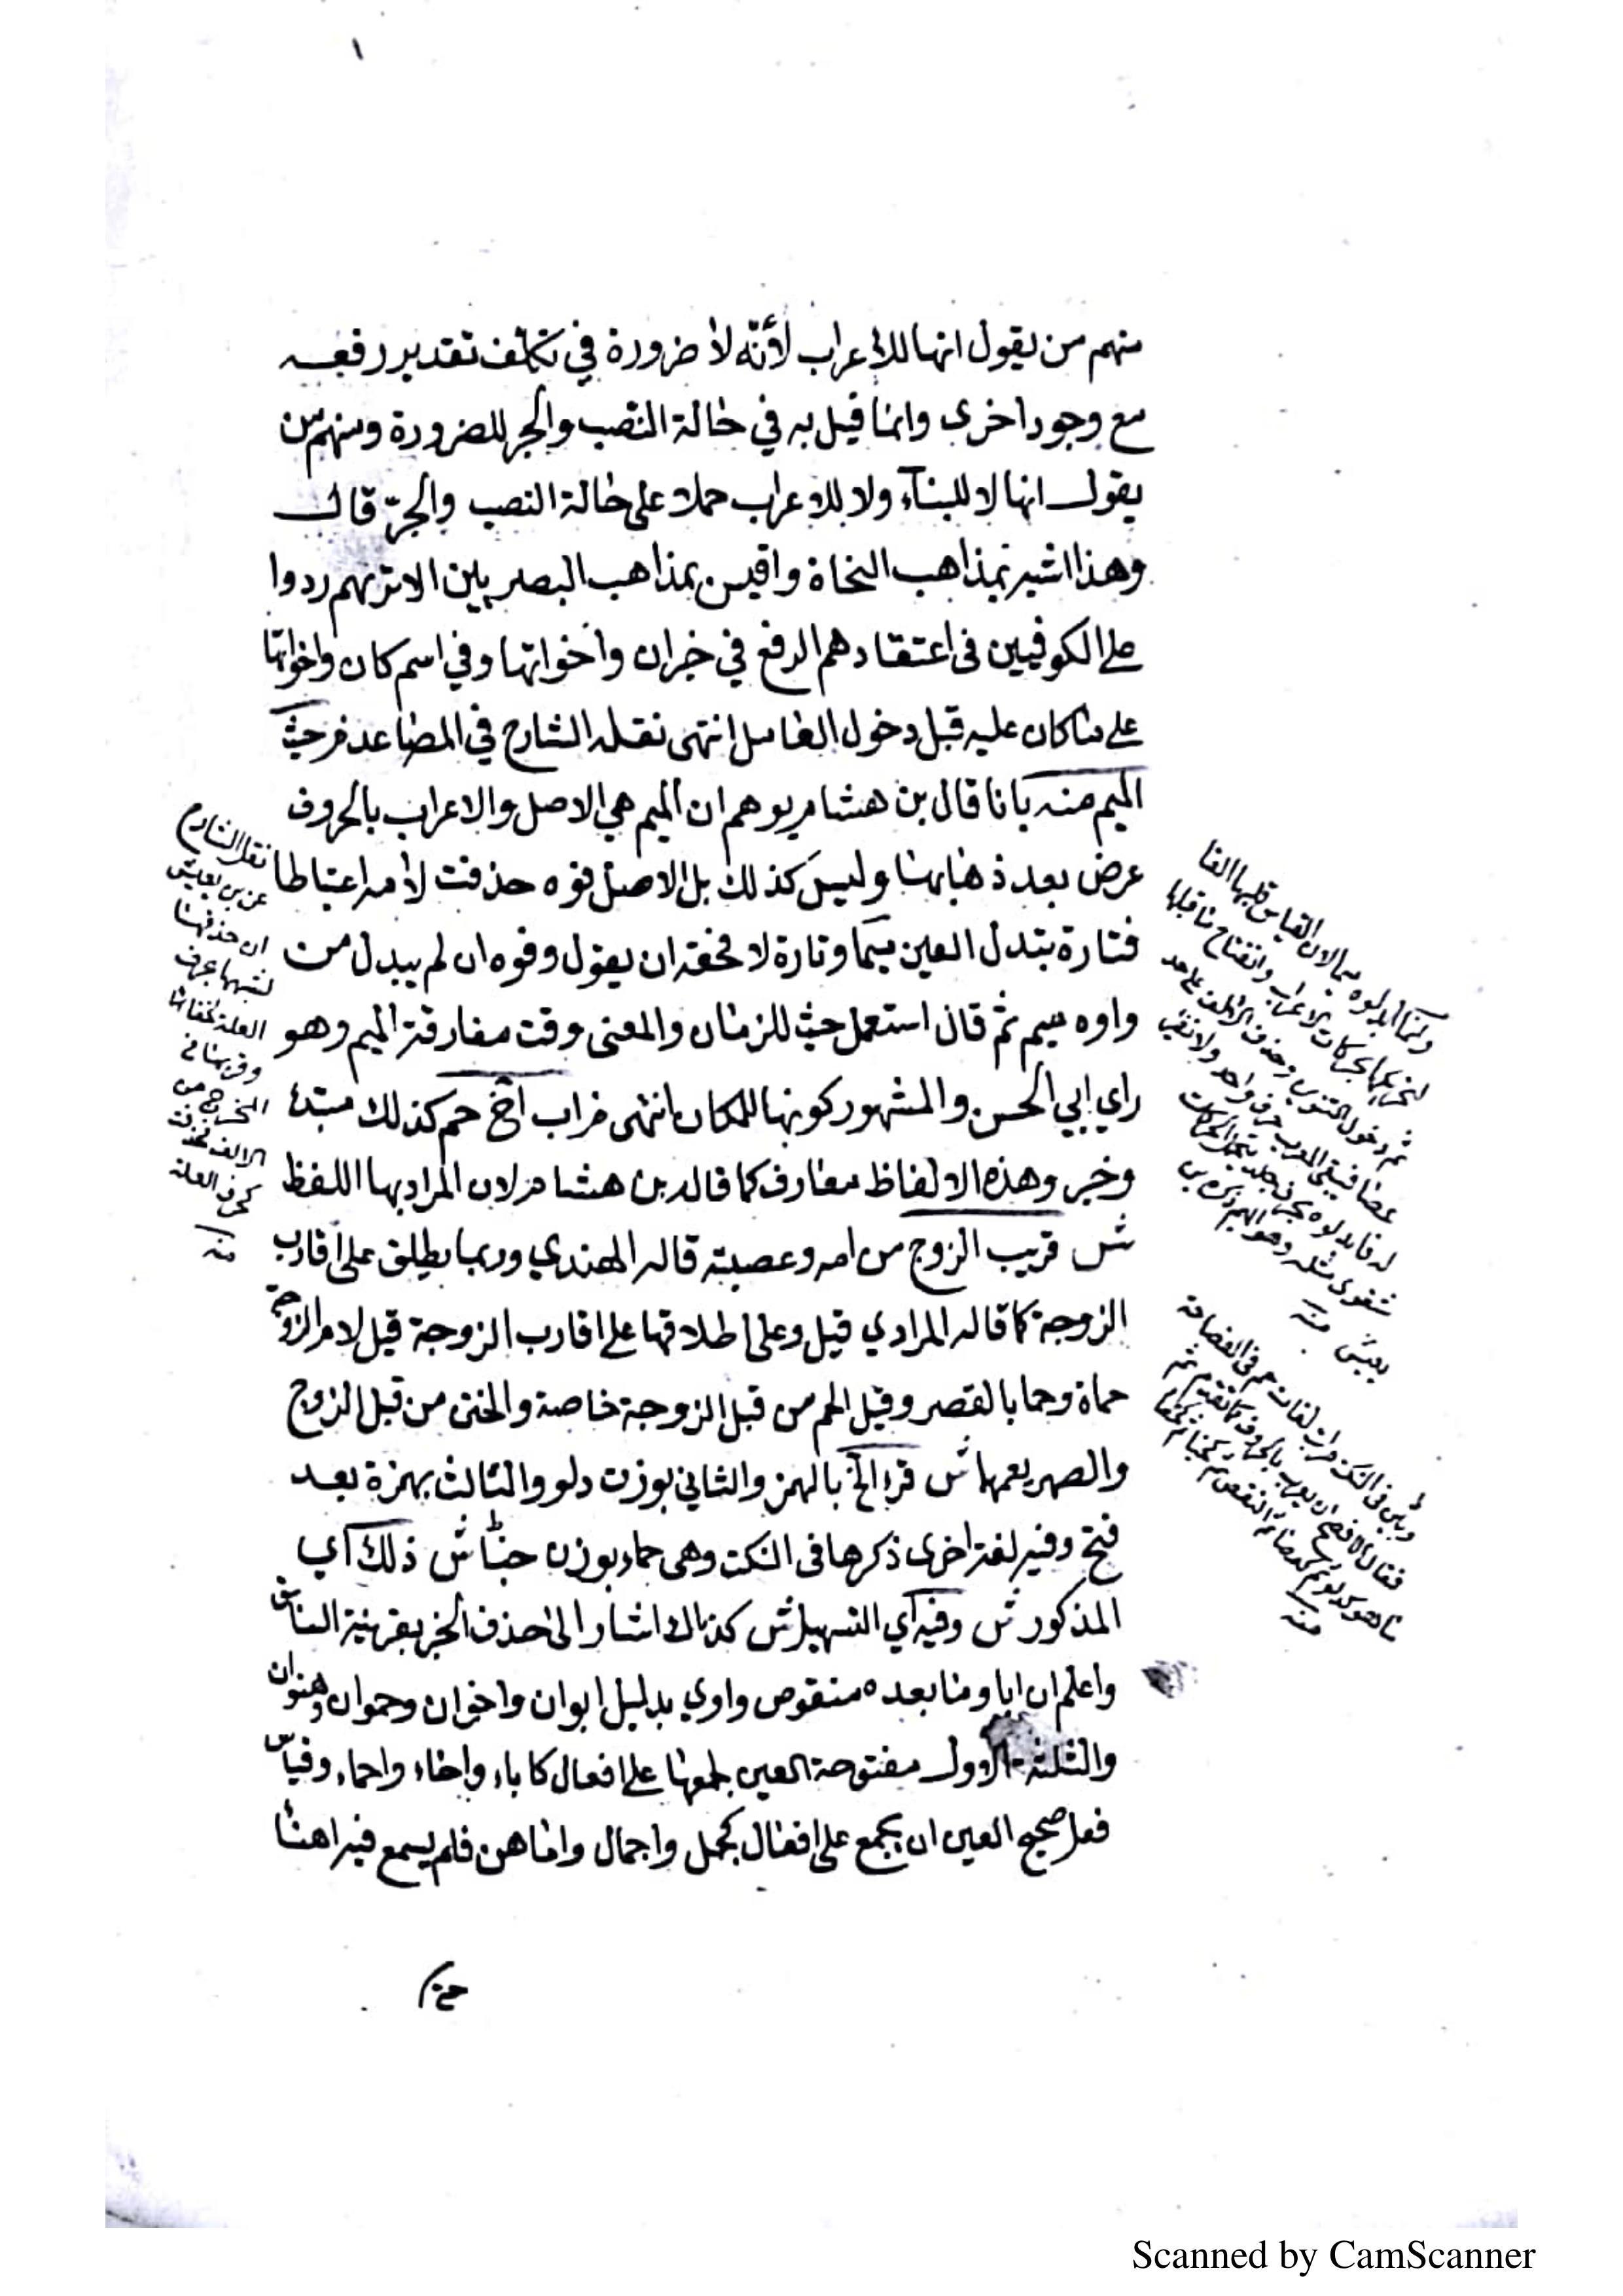 منهم من يقول انها للاعراب لأنّه لا ضرورة في تكلف تقدير رفعه
مع وجود اخرى وانما قيل به في حالة النصب والجر للضرورة ومنهم من
يقول انها لا للبناء ولا للاعراب حملا على حالة النصب والجرّ قال
وهذا اشبه بمذاهب النحاة واقيس بمذاهب البصريين الا تريهم ردوا
على الكوفيين في اعتقادهم الرفع في خبر ان واخواتها وفي اسم كان واخواتها
على ما كان عليه قبل دخول العامل انتهى نقله الشارح في المصاعد حيث
الميم منه بانا قال بن هشام يوهم ان الميم هي الاصل والاعراب بالحروف
عرض بعد ذهابها وليس كذلك بل الاصل فوه حذفت لامه اعتباطا
فتارة تبدل العين ميما وتارة لا فحقه ان يقول وفوه ان لم يبدل من
واوه ميم ثم قال استعمل حيث للزمان والمعنى وقت مفارقة الميم وهو
راي ابي الحسن والمشهور كونها للمكان انتهى اب اخ حم كذلك مبتدء
وخبر وهذه الالفاظ معارف كما قاله بن هشام لان المراد بها اللفظ
ش قريب الزوج من امه وعصبته قاله الهندي وربما يطلق على اقارب
الزوجة كما قاله المرادي قيل وعلى اطلاقها على اقارب الزوجة قيل لام الزوجة
حماة وحما بالقصر وقيل الحم من قبل الزوجة خاصة والختن من قبل الزوج
والصهر يعمها ش قرء الخ بالهمز والثاني بوزن دلو والثالث بهمزة بعد
فتح وفيه لغة اخرى ذكرها في النكت وهي حماء بوزن ش ذلك اي
المذكور ش وفيه اي التسهيل ش كذلك اشار الى حذف الخبر بقرينة
واعلم ان ابا وما بعده منقوص واوي بدليل ابوان واخوان وحموان وهنوان
والثلثة الاول مفتوحة العين لجمعها على افعال كاباء واخاء واحماء وقياس
فعل صحيح العين ان يجمع على افعال كجمل واجمال واما هن فلم يسمع فيه اهناء
نقل الشارح
عن بن يعيش
ان حذفها
لشبهها بحرف
العلة لخفائها
وقربها في
المخرج من
الالف فحذفت
كحرف العلة
منه
وانما ابدلوه ميما لان القياس قلبها الفا
لتحركها بحركات الاعراب وانفتاح ما قبلها
ثم دخول التنوين وحذف الالف على حد
عصا فيبقى المعرب حرف واحد ولا
بحرف جلد يتحمل الحركات
شفوي مثله وهو الميم ذكره بن
يعيش منه
منه
Scanned by CamScanner